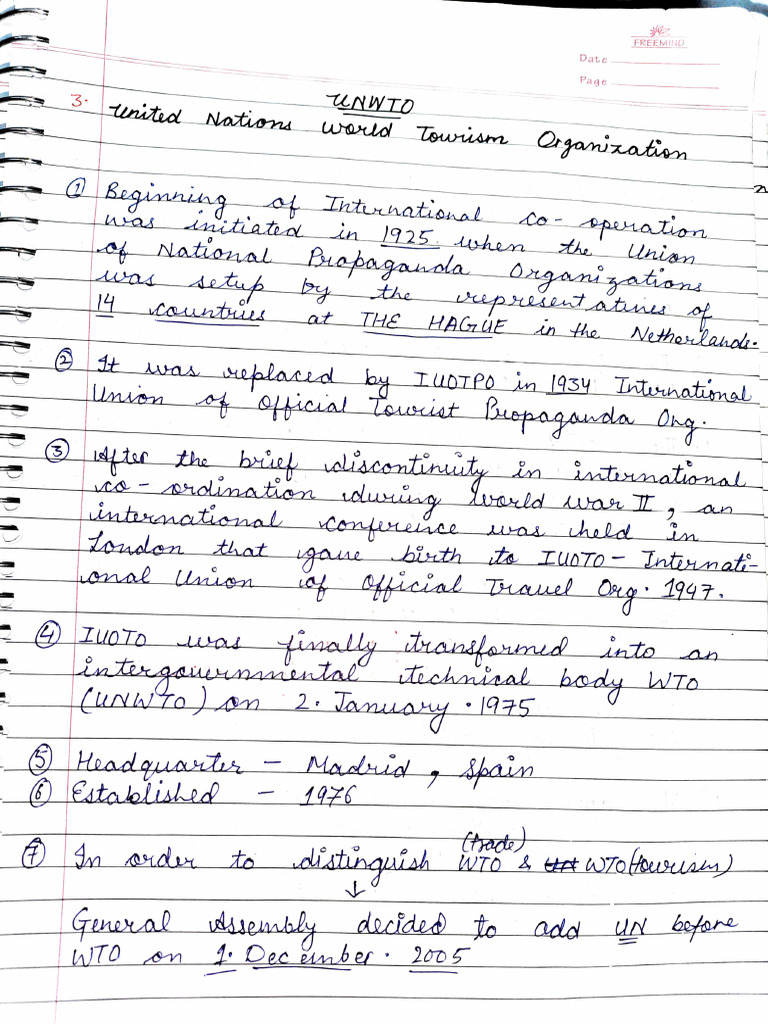 FREEMIND
Date
Page
UNWTO
3. United Nations World Tourism Organization
① Beginning of International co-operation
was initiated in 1925 when the Union
of National Propaganda Organizations
was setup by the representatives of
14 countries at THE HAGUE in the Netherlands.
② It was replaced by IUOTPO in 1934 International
Union of Official Tourist Propaganda Org.
③ After the brief discontinuity in international
co-ordination during world war II, an
international conference was held in
London that gave birth to IUOTO - Internati-
onal Union of Official Travel Org. 1947.
④ IUOTO was finally transformed into an
intergovernmental technical body WTO
(UNWTO) on 2. January. 1975
⑤ Headquarter - Madrid, Spain
⑥ Established - 1976
(trade)
⑦ In order to distinguish WTO & WTO (tourism)
↓
General Assembly decided to add UN before
WTO on 1. December. 2005